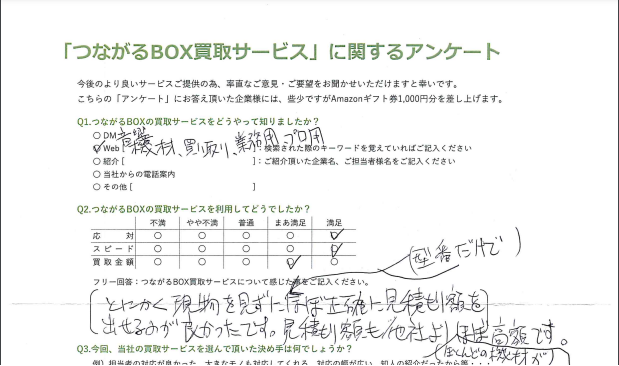 「つながるBOX買取サービス」に関するアンケート
今後のより良いサービスご提供の為、率直なご意見・ご要望をお聞かせいただけますと幸いです。
こちらの「アンケート」にお答え頂いた企業様には、些少ですがAmazonギフト券1,000円分を差し上げます。
Q1.つながるBOXの買取サービスをどうやって知りましたか？
○ DM
Web [ 音響機材、買い取り、業務用、プロ用 ]：検索された際のキーワードを覚えていればご記入ください
○ 紹介 [ ]：ご紹介頂いた企業名、ご担当者様名をご記入ください
○ 当社からの電話案内
○ その他 [ ]
Q2.つながるBOXの買取サービスを利用してどうでしたか？
不満 やや不満 普通 まあ満足 満足
応対 ○ ○ ○ ○ ✓
スピード ○ ○ ○ ○ ✓
買取金額 ○ ○ ○ ✓ ○
(型番だけで)
フリー回答：つながるBOX買取サービスについて感じた事をご記入ください。
とにかく現物を見ずにほぼ正確に見積もり額を
出せるのが良かったです。見積もり額も他社よりほぼ高額です。
Q3.今回、当社の買取サービスを選んで頂いた決め手は何でしょうか？
(ほとんどの機材が)
例）担当者の対応が良かった、大きなモノも対応してくれる、対応の幅が広い、知人の紹介だったから等・・・